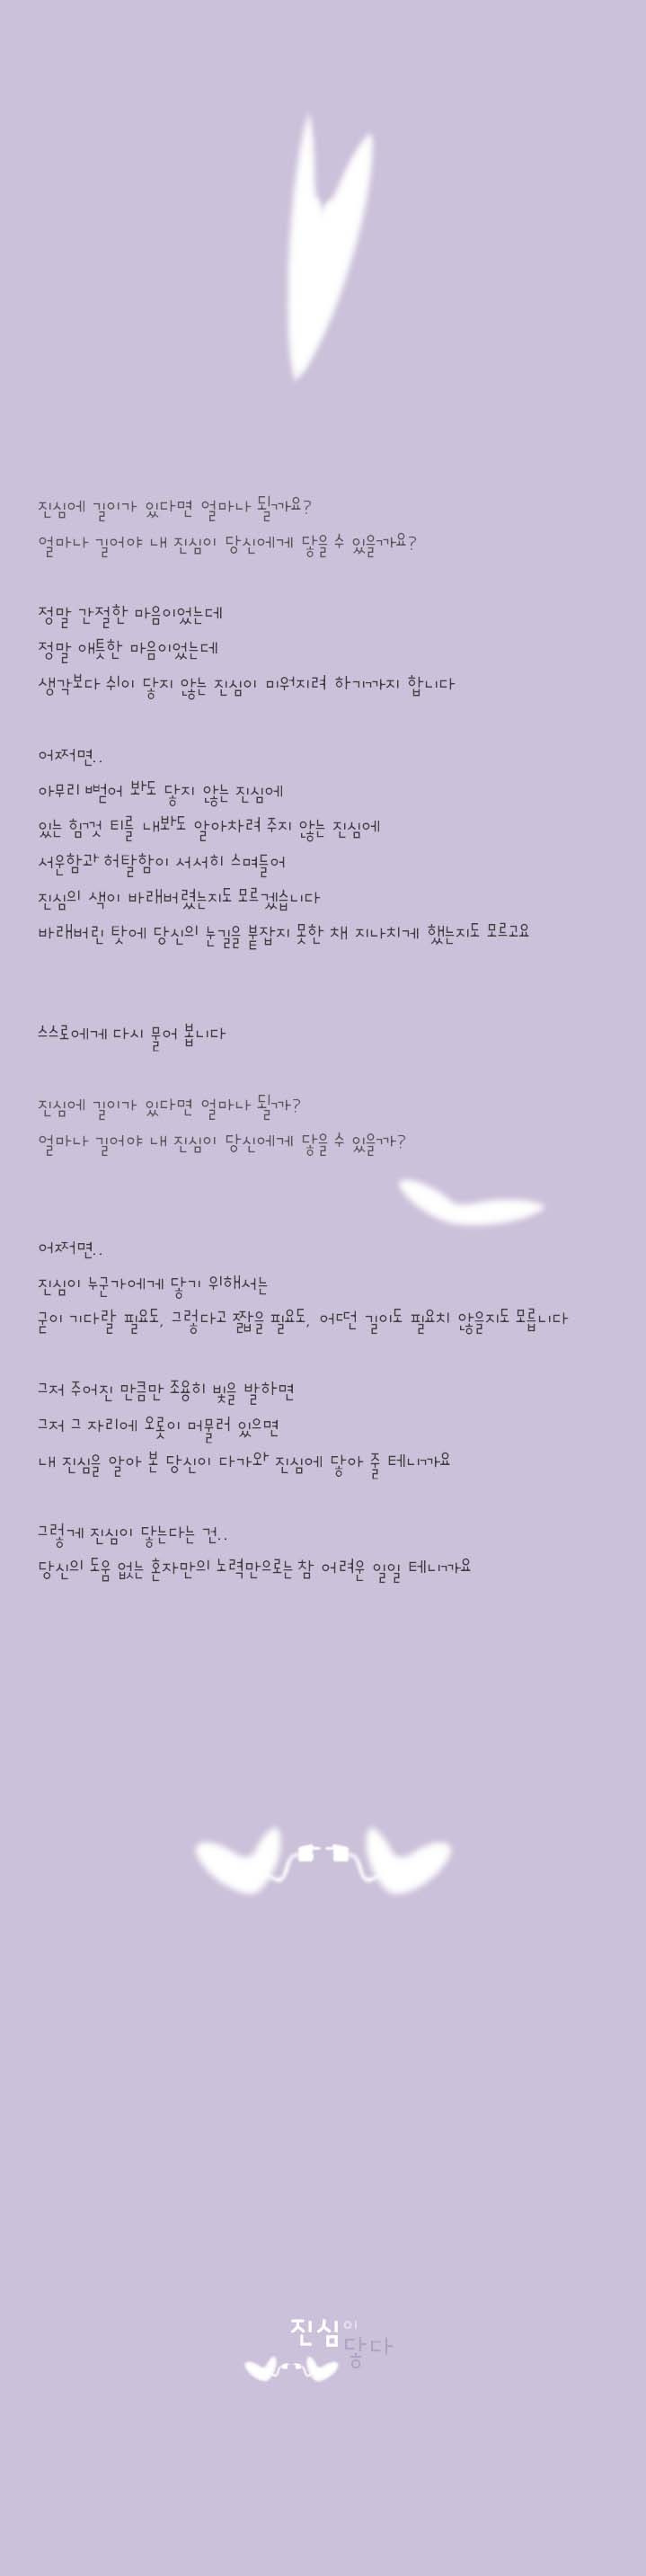 진심에 길이가 있다면 얼마나 될까요?
얼마나 길어야 내 진심이 당신에게 닿을 수 있을까요?
정말 간절한 마음이었는데
정말 애틋한 마음이었는데
생각보다 쉬이 닿지 않는 진심이 미워지려 하기까지 합니다
어쩌면..
아무리 뻗어 봐도 닿지 않는 진심에
있는 힘껏 티를 내봐도 알아차려 주지 않는 진심에
서운함과 허탈함이 서서히 스며들어
진심의 색이 바래버렸는지도 모르겠습니다
바래버린 탓에 당신의 눈길을 붙잡지 못한 채 지나치게 했는지도 모르고요
스스로에게 다시 물어 봅니다
진심에 길이가 있다면 얼마나 될까?
얼마나 길어야 내 진심이 당신에게 닿을 수 있을까?
어쩌면..
진심이 누군가에게 닿기 위해서는
굳이 기다랄 필요도, 그렇다고 짧을 필요도, 어떤 길이도 필요치 않을지도 모릅니다
그저 주어진 만큼만 조용히 빛을 발하면
그저 그 자리에 오롯이 머물러 있으면
내 진심을 알아 본 당신이 다가와 진심에 닿아 줄 테니까요
그렇게 진심이 닿는다는 건..
당신의 도움 없는 혼자만의 노력만으로는 참 어려운 일일 테니까요
진심이
닿다